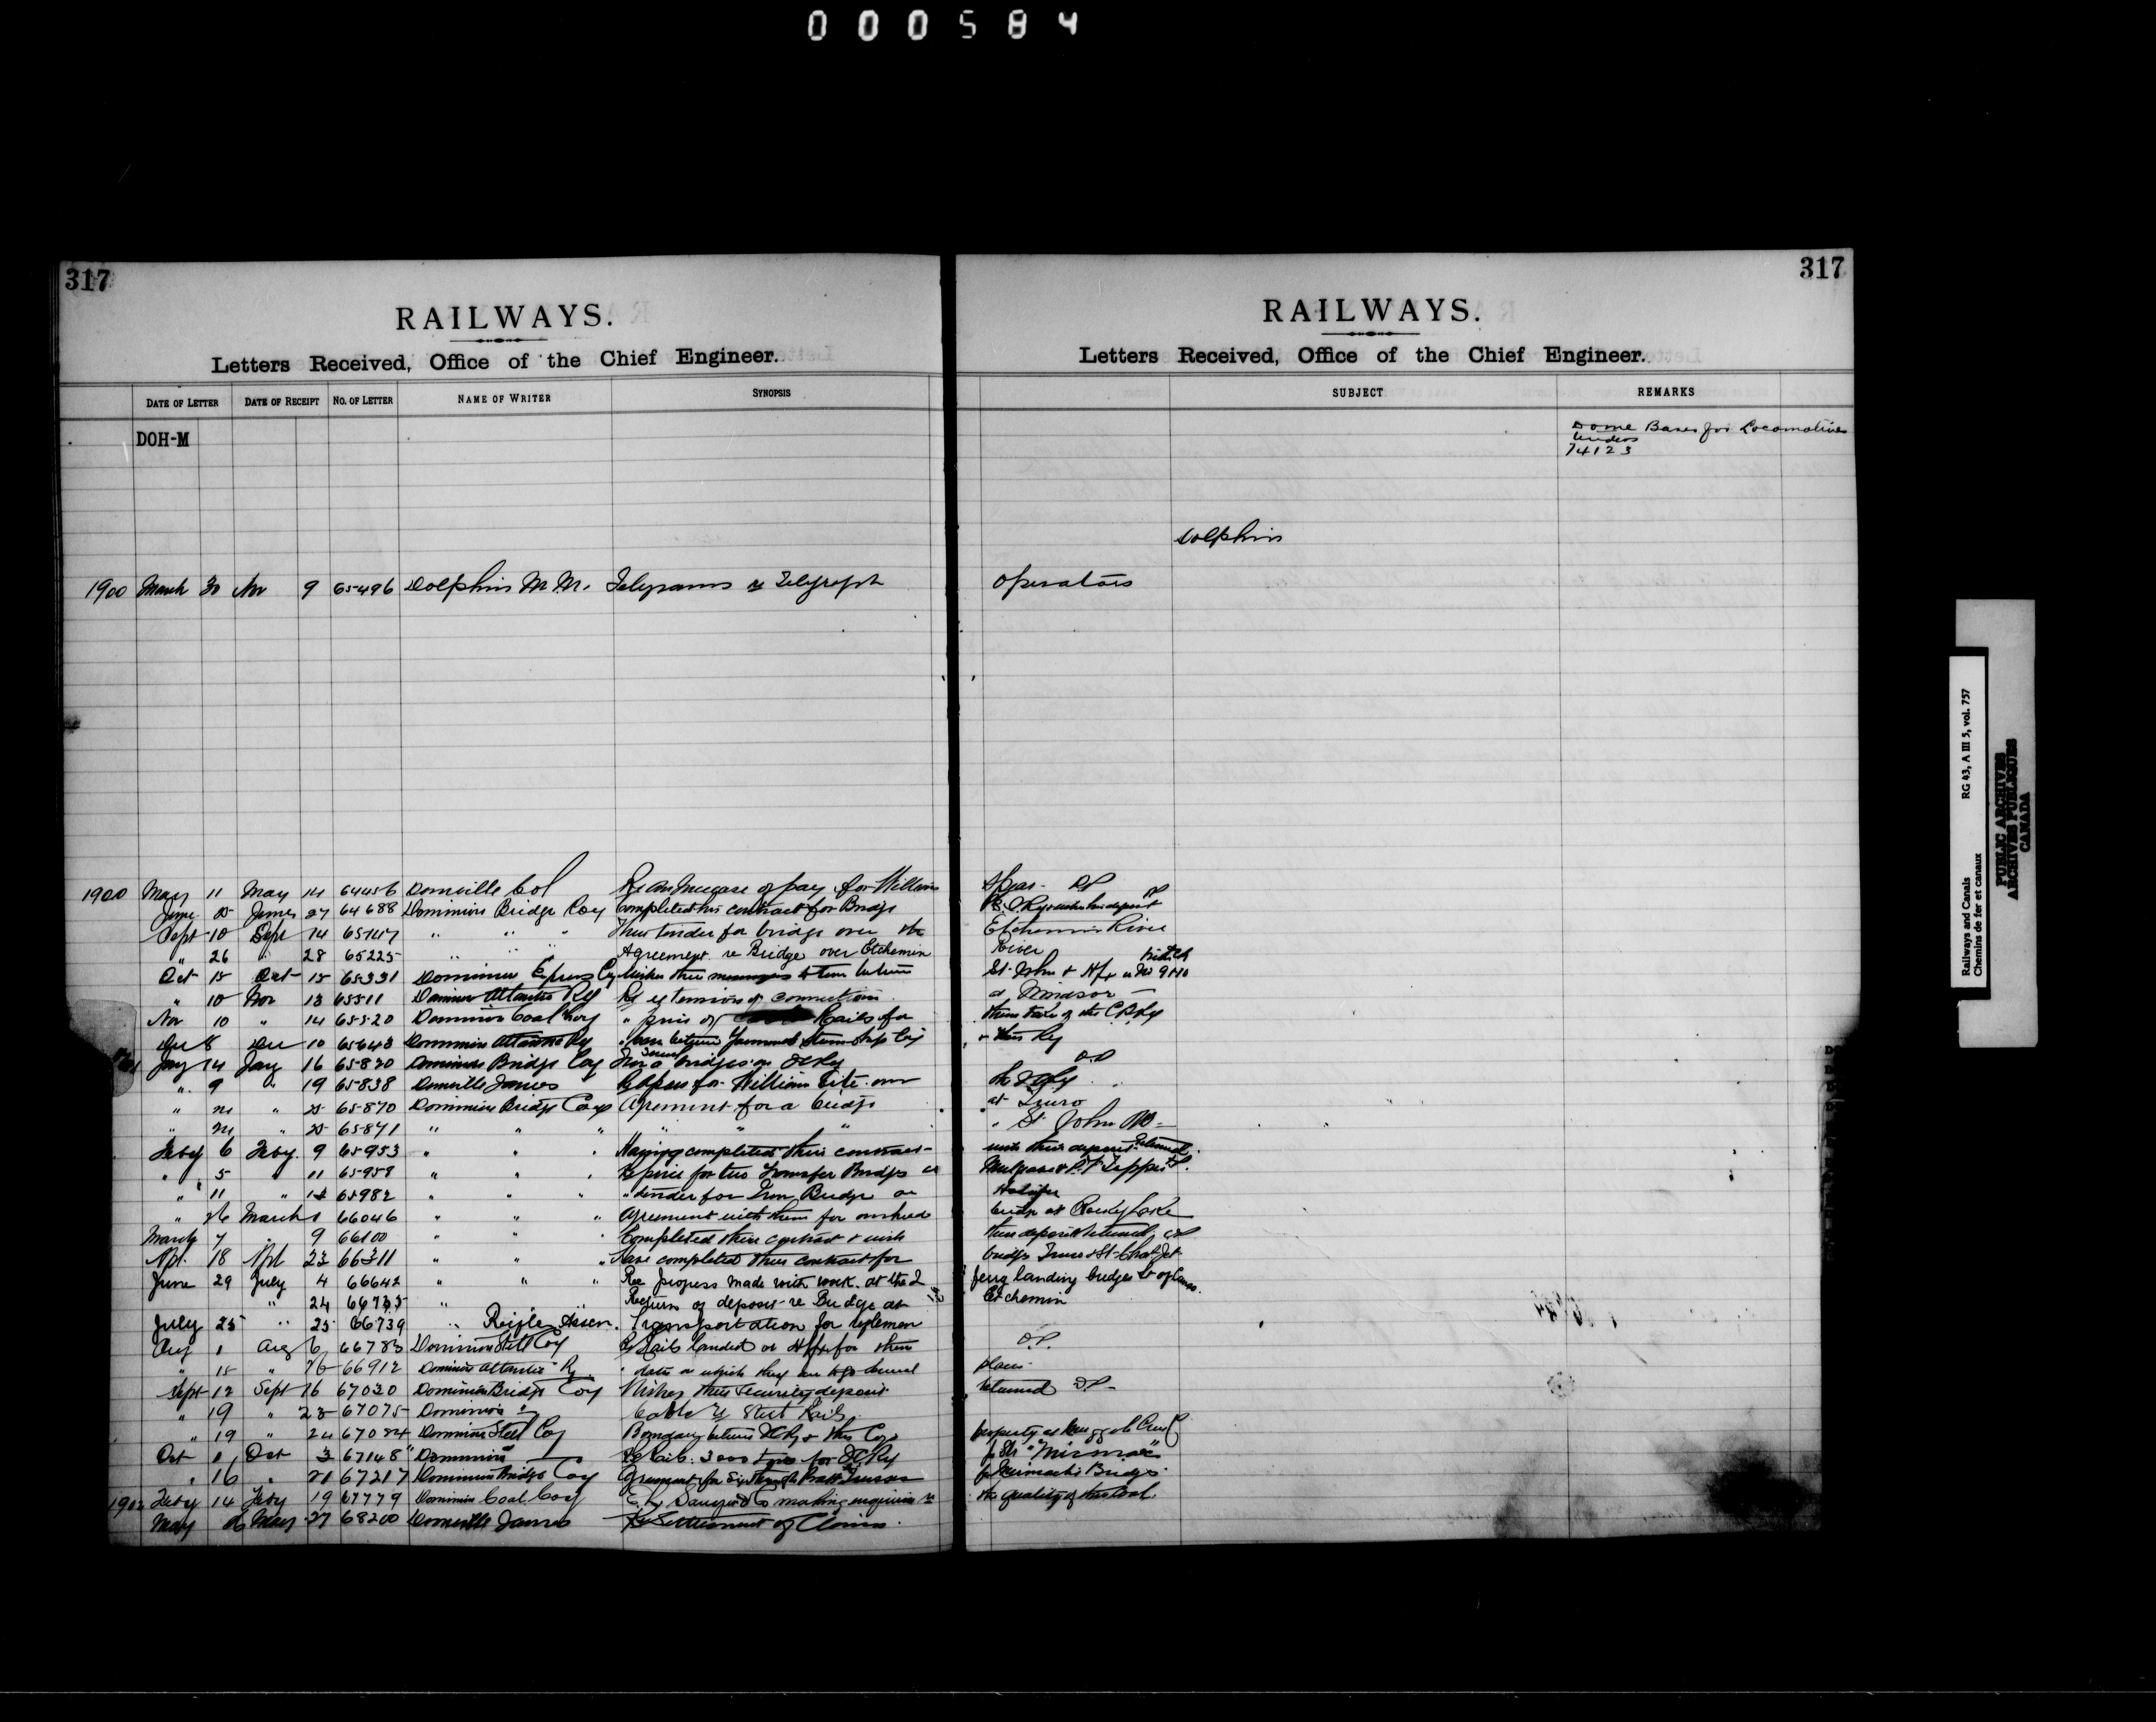 000584
317
RAILWAYS.
Letters Received, Office of the Chief Engineer.
DATE OF LETTER DATE OF RECEIPT NO. OF LETTER NAME OF WRITER SYNOPSIS
DOH-M
317
RAILWAYS.
Letters Received, Office of the Chief Engineer.
SUBJECT REMARKS
Dome Bases for Locomotives
Tenders
74123
Dolphin
1900 March 30 Nov 9 65496 Dolphin M.M. Telegrams re Telegraph operators
1900 May 11 May 14 64456 Domville Col Re an increase of pay for William Spear. DP
June 25 June 27 64688 Dominion Bridge Coy completed his contract for Bridge
Sept 10 Sept 14 65147 " " " Their tender for bridge over the Etchemin River
" 26 " 28 65225 " " " Agreement re Bridge over Etchemin River
Oct 15 Oct 15 65331 Dominion Express Cy between St. John & Hfx
" 10 Nov 13 65511 Dominion Atlantic Ry Re extension of connections at Windsor
Nov 10 " 14 65520 Dominion Coal Coy " price of Rails for
Dec 8 Dec 10 65643 Dominion Atlantic Ry between Steamship Coy & this Ry
Jany 14 Jany 16 65830 Dominion Bridge Coy bridges on ICRy DP
" 9 " 19 65838 Domville James for William over the ICRy
" 21 " 25 65870 Dominion Bridge Coy Agreement for a bridge at Truro
" 21 " 25 65871 " " " " " " St John NB
Feby 6 Feby 9 65953 " " " Having completed their contract wish their deposit returned.
" 5 " 11 65958 " " " Re price for two Transfer Bridges at Mulgrave & Pt Tupper
" 11 " 14 65982 " " " " tender for Iron Bridge at Halifax
" 26 March 1 66046 " " " Agreement with them for bridge at Rocky Lake
March 7 " 9 66100 " " " Completed their contract & wish their deposit returned
Apl. 18 Apl 23 66311 " " " Have completed their contract for bridge Truro & St
June 29 July 4 66642 " " " Re progress made with work at the 2 ferry landing bridges St of Canso.
" 24 66735 " Return of deposit re Bridge at Etchemin
July 25 " 25 66739 " Rifle Assen. Transportation for riflemen
Aug 1 Aug 6 66783 Dominion Steel Coy Re Rails landed at Hfx for them DP.
" 15 " 26 66912 Dominion Atlantic Ry " date on which they are to plans
Sept 12 Sept 16 67020 Dominion Bridge Coy Wishes their security deposit returned DP
" 19 " 23 67075 Dominion " Cable re Steel Rails
" 19 " 24 67084 Dominion Steel Coy Boundary between ICRy & this Coys property
Oct 1 Oct 3 67148 Dominion Re Rails. 3000 tons for ICRy "Micmac"
" 16 " 21 67217 Dominion Bridge Coy Agreement for Six Through Pratt Trusses for Miramichi Bridge
1902 Feby 14 Feby 19 67779 Dominion Coal Coy making enquiries re the quality of this Coal.
May 26 May 27 68200 Domville James Re Settlement of Claims.
Railways and Canals RG 43, A III 5, vol. 757
Chemins de fer et canaux
PUBLIC ARCHIVES
ARCHIVES PUBLIQUES
CANADA